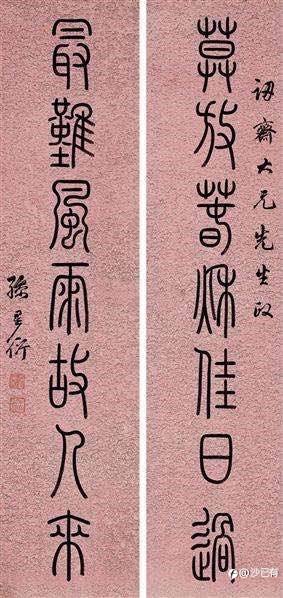 訒齋大兄先生政
莫放春秋佳日過
最難風雨故人來
孫星衍
@沙已有